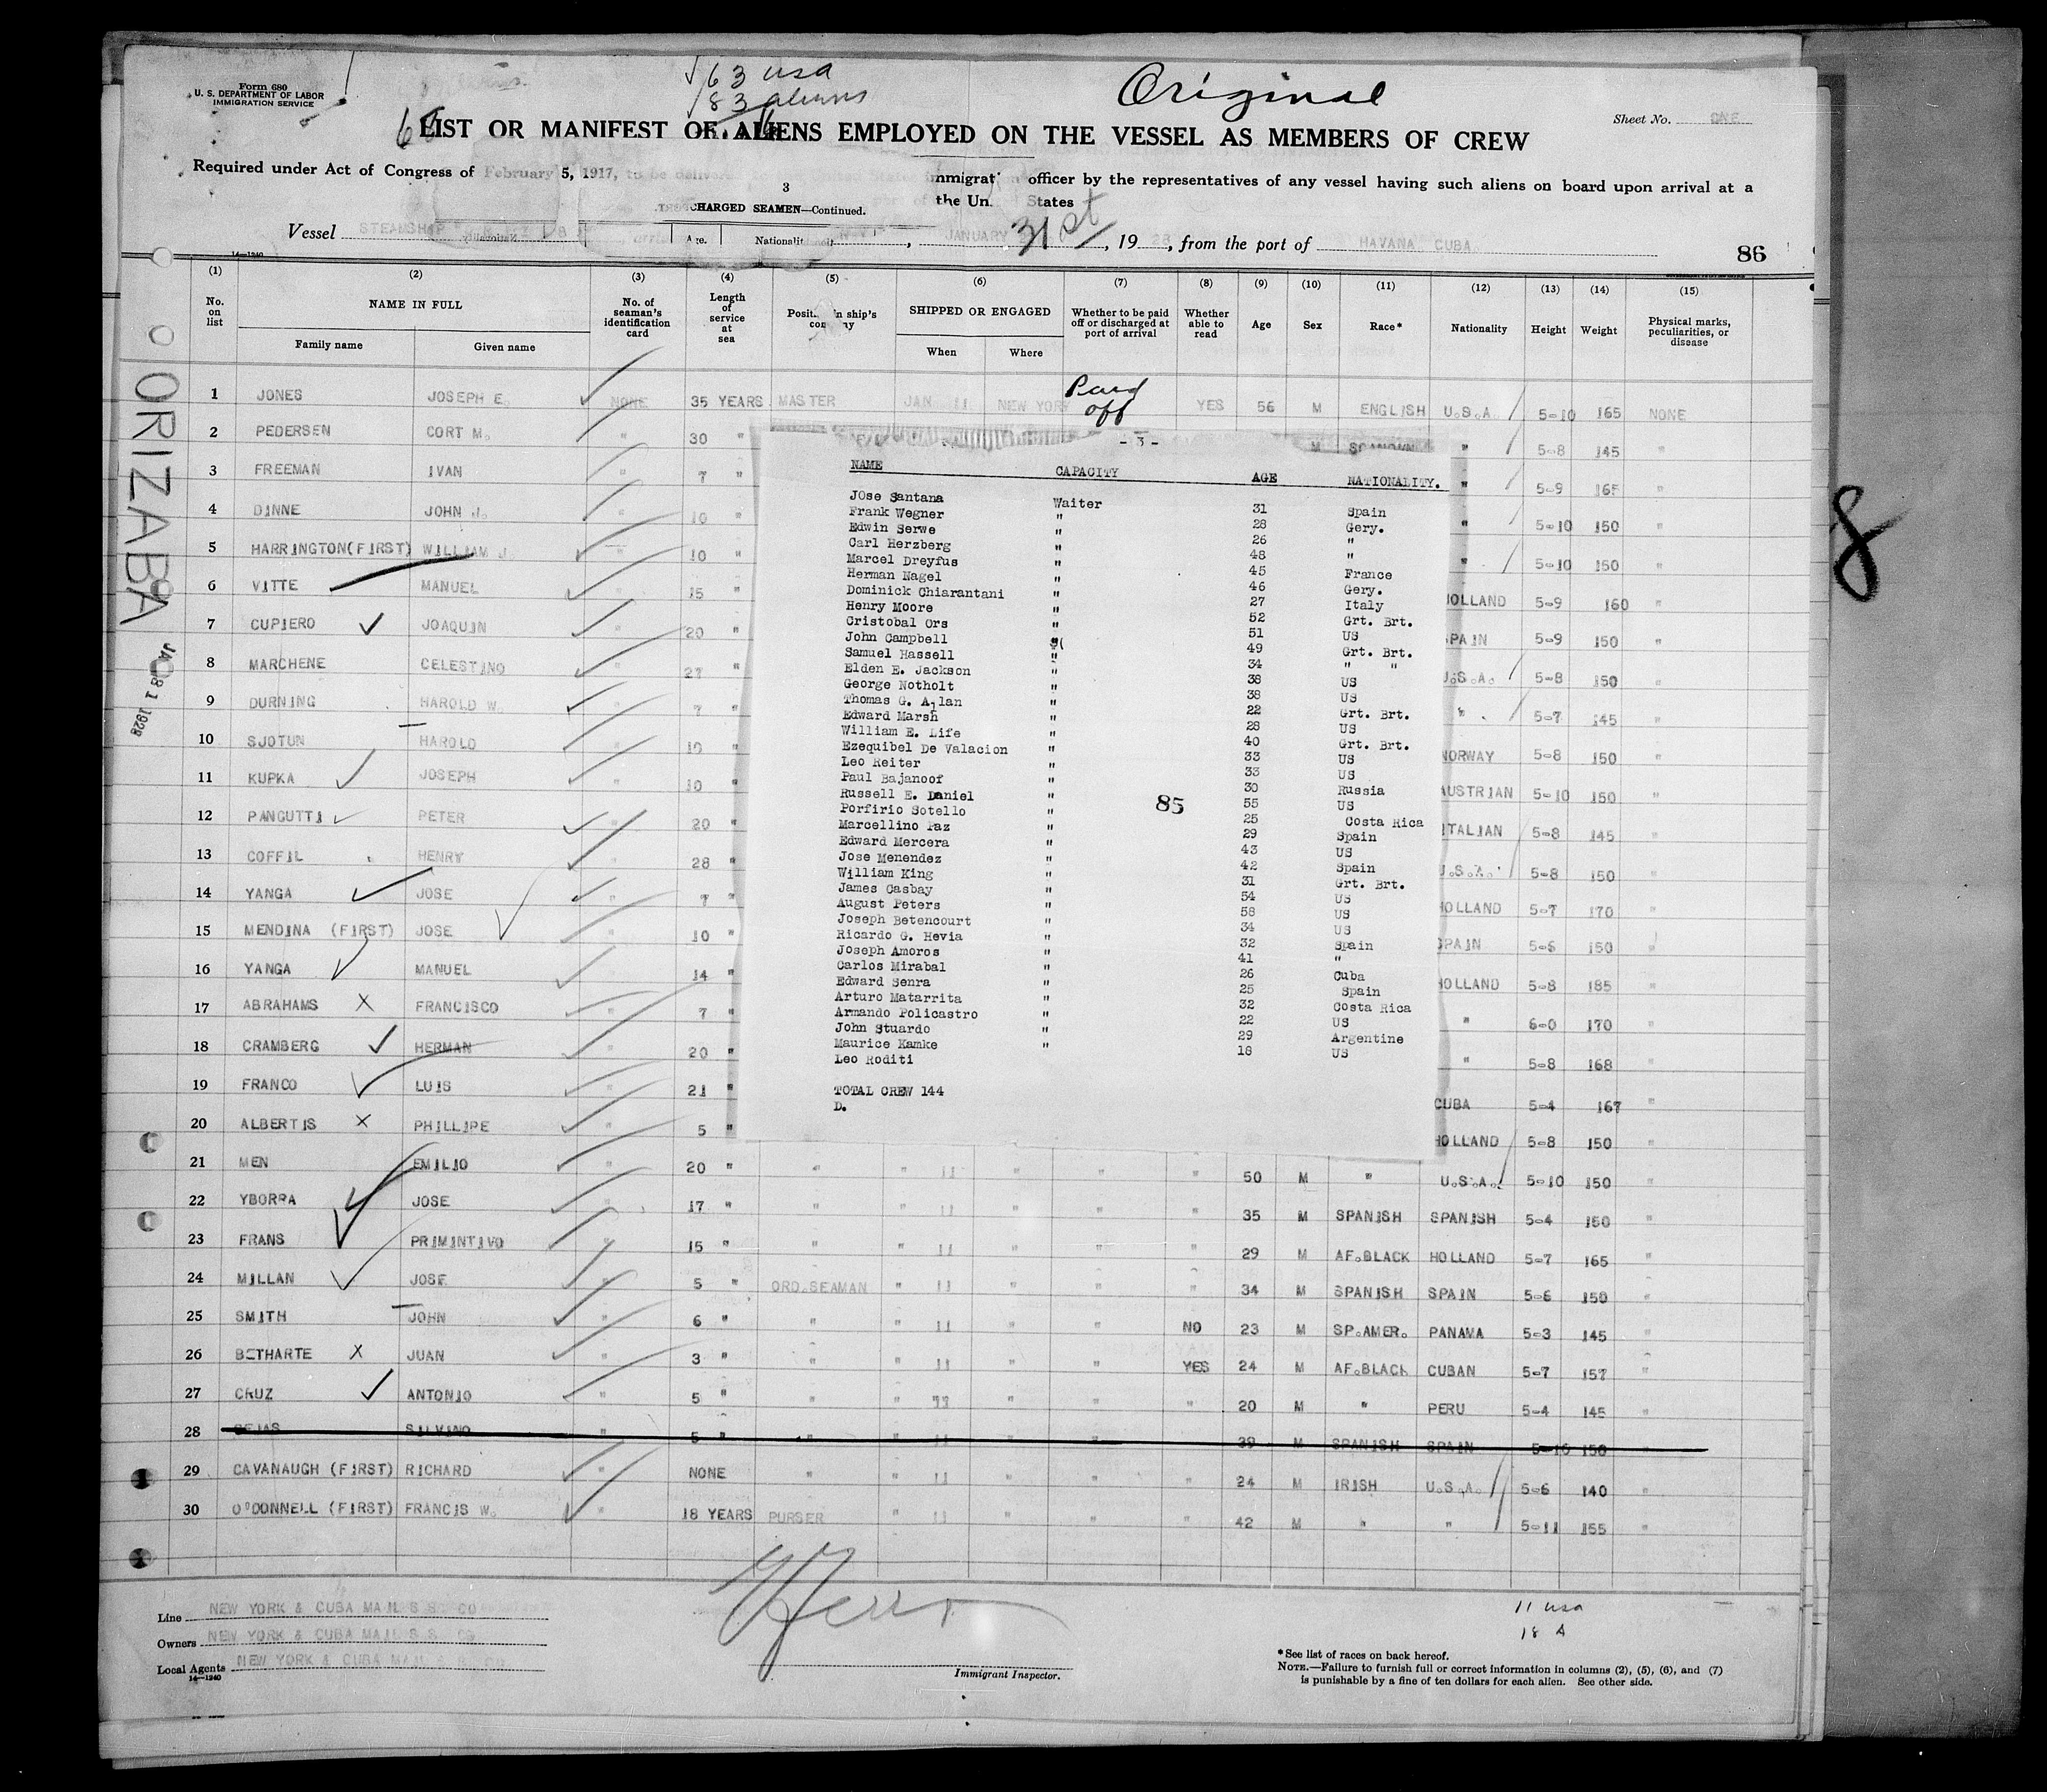 Form 680
U. S. DEPARTMENT OF LABOR
IMMIGRATION SERVICE
63 usa
83 aliens
Original
Sheet No. ONE
LIST OR MANIFEST OF ALIENS EMPLOYED ON THE VESSEL AS MEMBERS OF CREW
Required under Act of Congress of February 5, 1917, to be delivered officer by the representatives of any vessel having such aliens on board upon arrival at a
3
CHARGED SEAMEN—Continued.
the Un States
Vessel STEAMSHIP Age. JANUARY 31st, 19 28, from the port of HAVANA CUBA
86
14—1240
(1) (2) (3) (4) (5) (6) (7) (8) (9) (10) (11) (12) (13) (14) (15)
No. on list NAME IN FULL No. of seaman's identification card Length of service at sea SHIPPED OR ENGAGED Whether to be paid off or discharged at port of arrival Whether able to read Age Sex Race* Nationality Height Weight Physical marks, peculiarities, or disease
Family name Given name When Where
ORIZABA
1928
8
1 JONES JOSEPH E. NONE 35 YEARS MASTER JAN 11 NEW YORK Paid off YES 56 M ENGLISH U.S.A. 5-10 165 NONE
2 PEDERSEN CORT M. " 30 " " 5-8 145 "
3 FREEMAN IVAN " 7 " " 5-9 165 "
4 DINNE JOHN J. " 10 " " 5-10 150 "
5 HARRINGTON(FIRST) WILLIAM J. " 10 " " 5-10 150 "
6 VITTE MANUEL " 15 " HOLLAND 5-9 160 "
7 CUPIERO JOAQUIN " 20 " SPAIN 5-9 150 "
8 MARCHENE CELESTINO " 27 " U.S.A. 5-8 150 "
9 DURNING HAROLD W. " 7 " " 5-7 145 "
10 SJOTUN HAROLD " 10 " NORWAY 5-8 150 "
11 KUPKA JOSEPH " 10 " AUSTRIAN 5-10 150 "
12 PANGUTTI PETER " 20 " ITALIAN 5-8 145 "
13 COFFIL HENRY " 28 " U.S.A. 5-8 150 "
14 YANGA JOSE " 7 " HOLLAND 5-7 170 "
15 MENDINA (FIRST) JOSE " 10 " SPAIN 5-6 150 "
16 YANGA MANUEL " 14 " HOLLAND 5-8 185 "
17 ABRAHAMS FRANCISCO " 7 " " 6-0 170 "
18 CRAMBERG HERMAN " 20 " " 5-8 168 "
19 FRANCO LUIS " 21 " CUBA 5-4 167 "
20 ALBERTIS PHILLIPE " 5 " HOLLAND 5-8 150 "
21 MEN EMILIO " 20 " " " 11 " " " 50 M " U.S.A. 5-10 150 "
22 YBORRA JOSE " 17 " " " 11 " " " 35 M SPANISH SPANISH 5-4 150 "
23 FRANS PRIMINTIVO " 15 " " " 11 " " " 29 M AF.BLACK HOLLAND 5-7 165 "
24 MILLAN JOSE " 5 " ORD.SEAMAN " 11 " " " 34 M SPANISH SPAIN 5-6 150 "
25 SMITH JOHN " 6 " " " 11 " " NO 23 M SP.AMER. PANAMA 5-3 145 "
26 BETHARTE JUAN " 3 " " " 11 " " YES 24 M AF.BLACK CUBAN 5-7 157 "
27 CRUZ ANTONIO " 5 " " " 11 " " " 20 M " PERU 5-4 145 "
28 SILVINO " 5 " " " 11 " " " 39 M SPANISH SPAIN 5-10 150
29 CAVANAUGH (FIRST) RICHARD " NONE " " 11 " " " 24 M IRISH U.S.A. 5-6 140 "
30 O'DONNELL (FIRST) FRANCIS W. " 18 YEARS PURSER " 11 " " " 42 M " " 5-11 155 "
- 3 -
NAME CAPACITY AGE NATIONALITY.
JOse Santana Waiter 31 Spain
Frank Wegner " 28 Gery.
Edwin Serwe " 26 "
Carl Herzberg " 48 "
Marcel Dreyfus " 45 France
Herman Nagel " 46 Gery.
Dominick Chiarantani " 27 Italy
Henry Moore " 52 Grt. Brt.
Cristobal Ors " 51 US
John Campbell " 49 Grt. Brt.
Samuel Hassell " 34 " "
Elden E. Jackson " 38 US
George Notholt " 38 US
Thomas G. Allan " 22 Grt. Brt.
Edward Marsh " 28 US
William E. Life " 40 Grt. Brt.
Ezequibel De Valacion " 33 US
Leo Reiter " 33 US
Paul Bajanoof " 30 Russia
Russell E. Daniel " 55 US
Porfirio Sotello " 25 Costa Rica
Marcellino Paz " 29 Spain
Edward Mercera " 43 US
Jose Menendez " 42 Spain
William King " 31 Grt. Brt.
James Casbay " 54 US
August Peters " 58 US
Joseph Betencourt " 34 US
Ricardo G. Hevia " 32 Spain
Joseph Amoros " 41 "
Carlos Mirabal " 26 Cuba
Edward Senra " 25 Spain
Arturo Matarrita " 32 Costa Rica
Armando Policastro " 22 US
John Stuardo " 29 Argentine
Maurice Kamke " 18 US
Leo Roditi
85
TOTAL CREW 144
D.
Line NEW YORK & CUBA MAIL S.S. CO
Owners NEW YORK & CUBA MAIL S.S. CO
Local Agents NEW YORK & CUBA MAIL S.S. CO
14—1240
Immigrant Inspector.
11 usa
18 A
*See list of races on back hereof.
NOTE.—Failure to furnish full or correct information in columns (2), (5), (6), and (7)
is punishable by a fine of ten dollars for each alien. See other side.